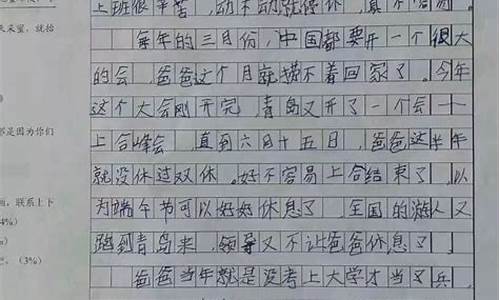 上班很辛苦，动不动就停休，真不容易。
每年的三月份，中国都要开一个很大
的会，爸爸这个月就摸不着回家了。今年
这个大会刚开完，青岛又开了一个会一一
上合峰会，直到六月十五日，爸爸这半年
就没休过双休。好不容易上合结束了，以
为端午节可以好好休息了，全国的游人又
跑到青岛来，领导又不让爸爸休息了。
爸爸当年就是没考上大学才当了兵，
天来望，就抬
那是因为你们
面，联系上下
4%）
%）
己。（3%）